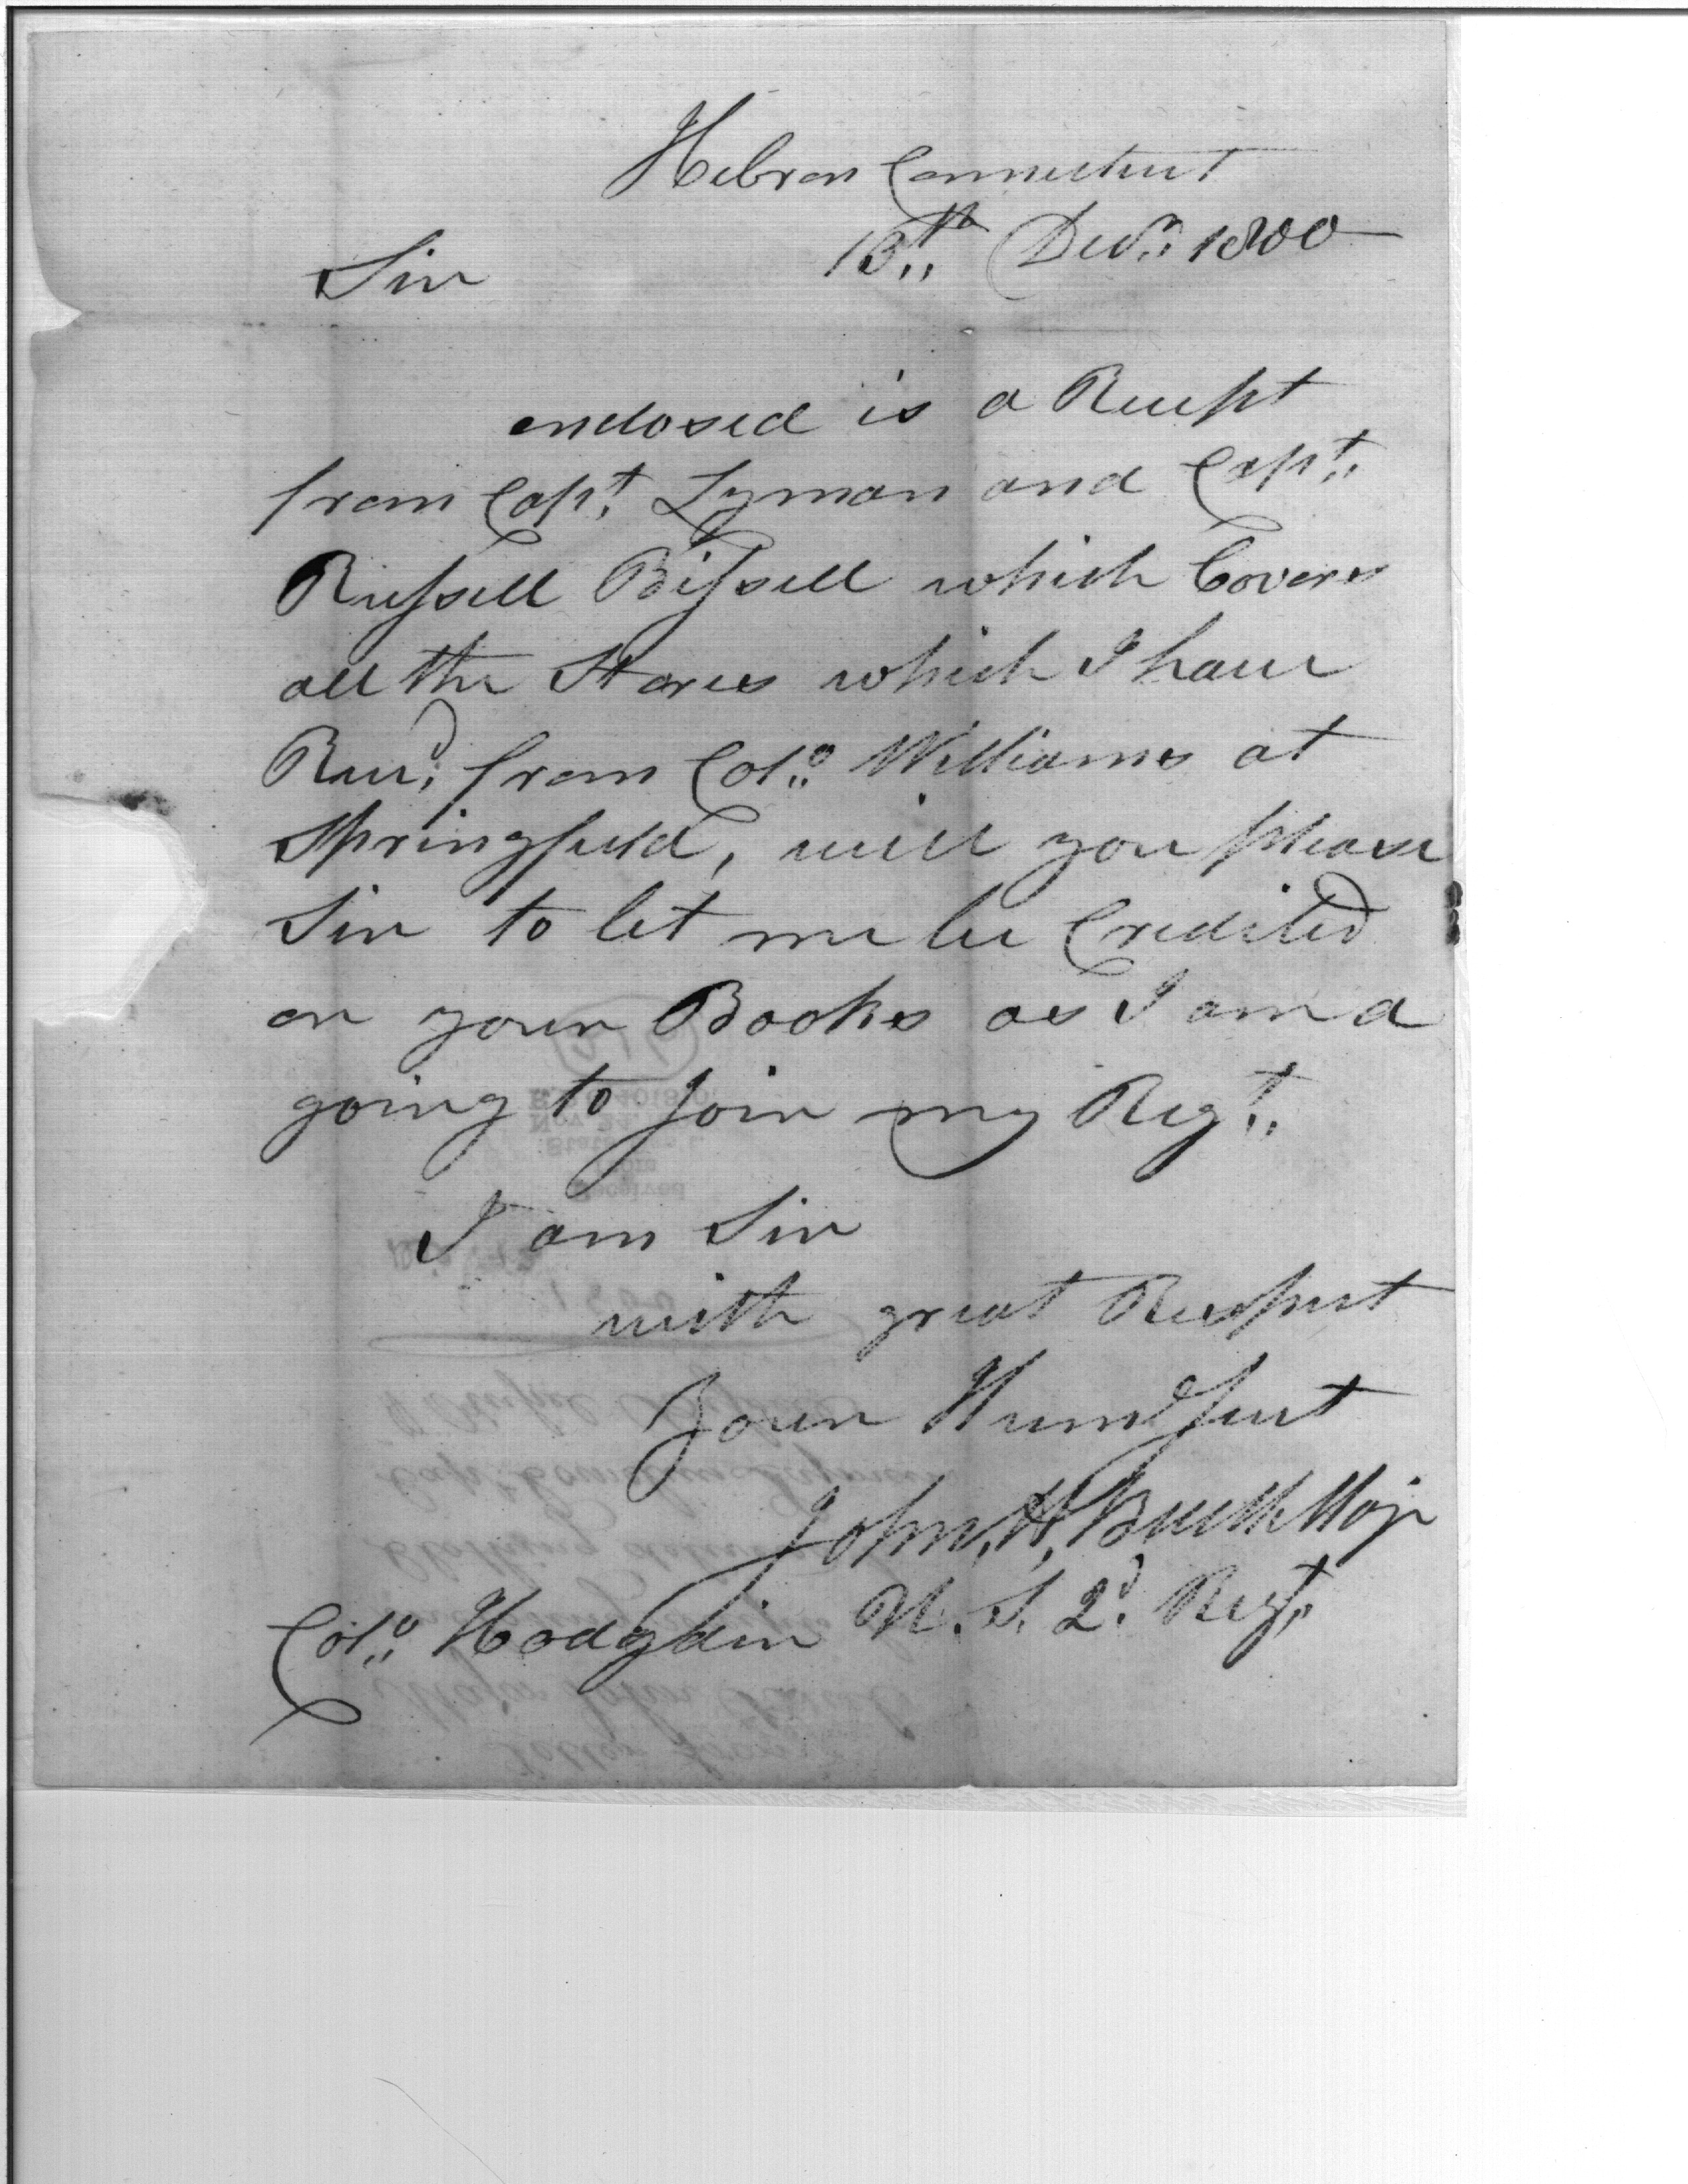 Hebron Connecticut
13th Decr. 1800
Sir
enclosed is a Receipt
from Capt. Lyman and Capt.
Russell Bissell which Covers
all the Stores which I have
Recd. from Colo. Williams at
Springfield, will you please
Sir to let me be Credited
on your Books as I am a
going to join my Regt.
I am Sir
with great Respect
Your Humd Sert
John, H, Buell Maj
Colo. Hodgdin U. S. 2d. Regt.